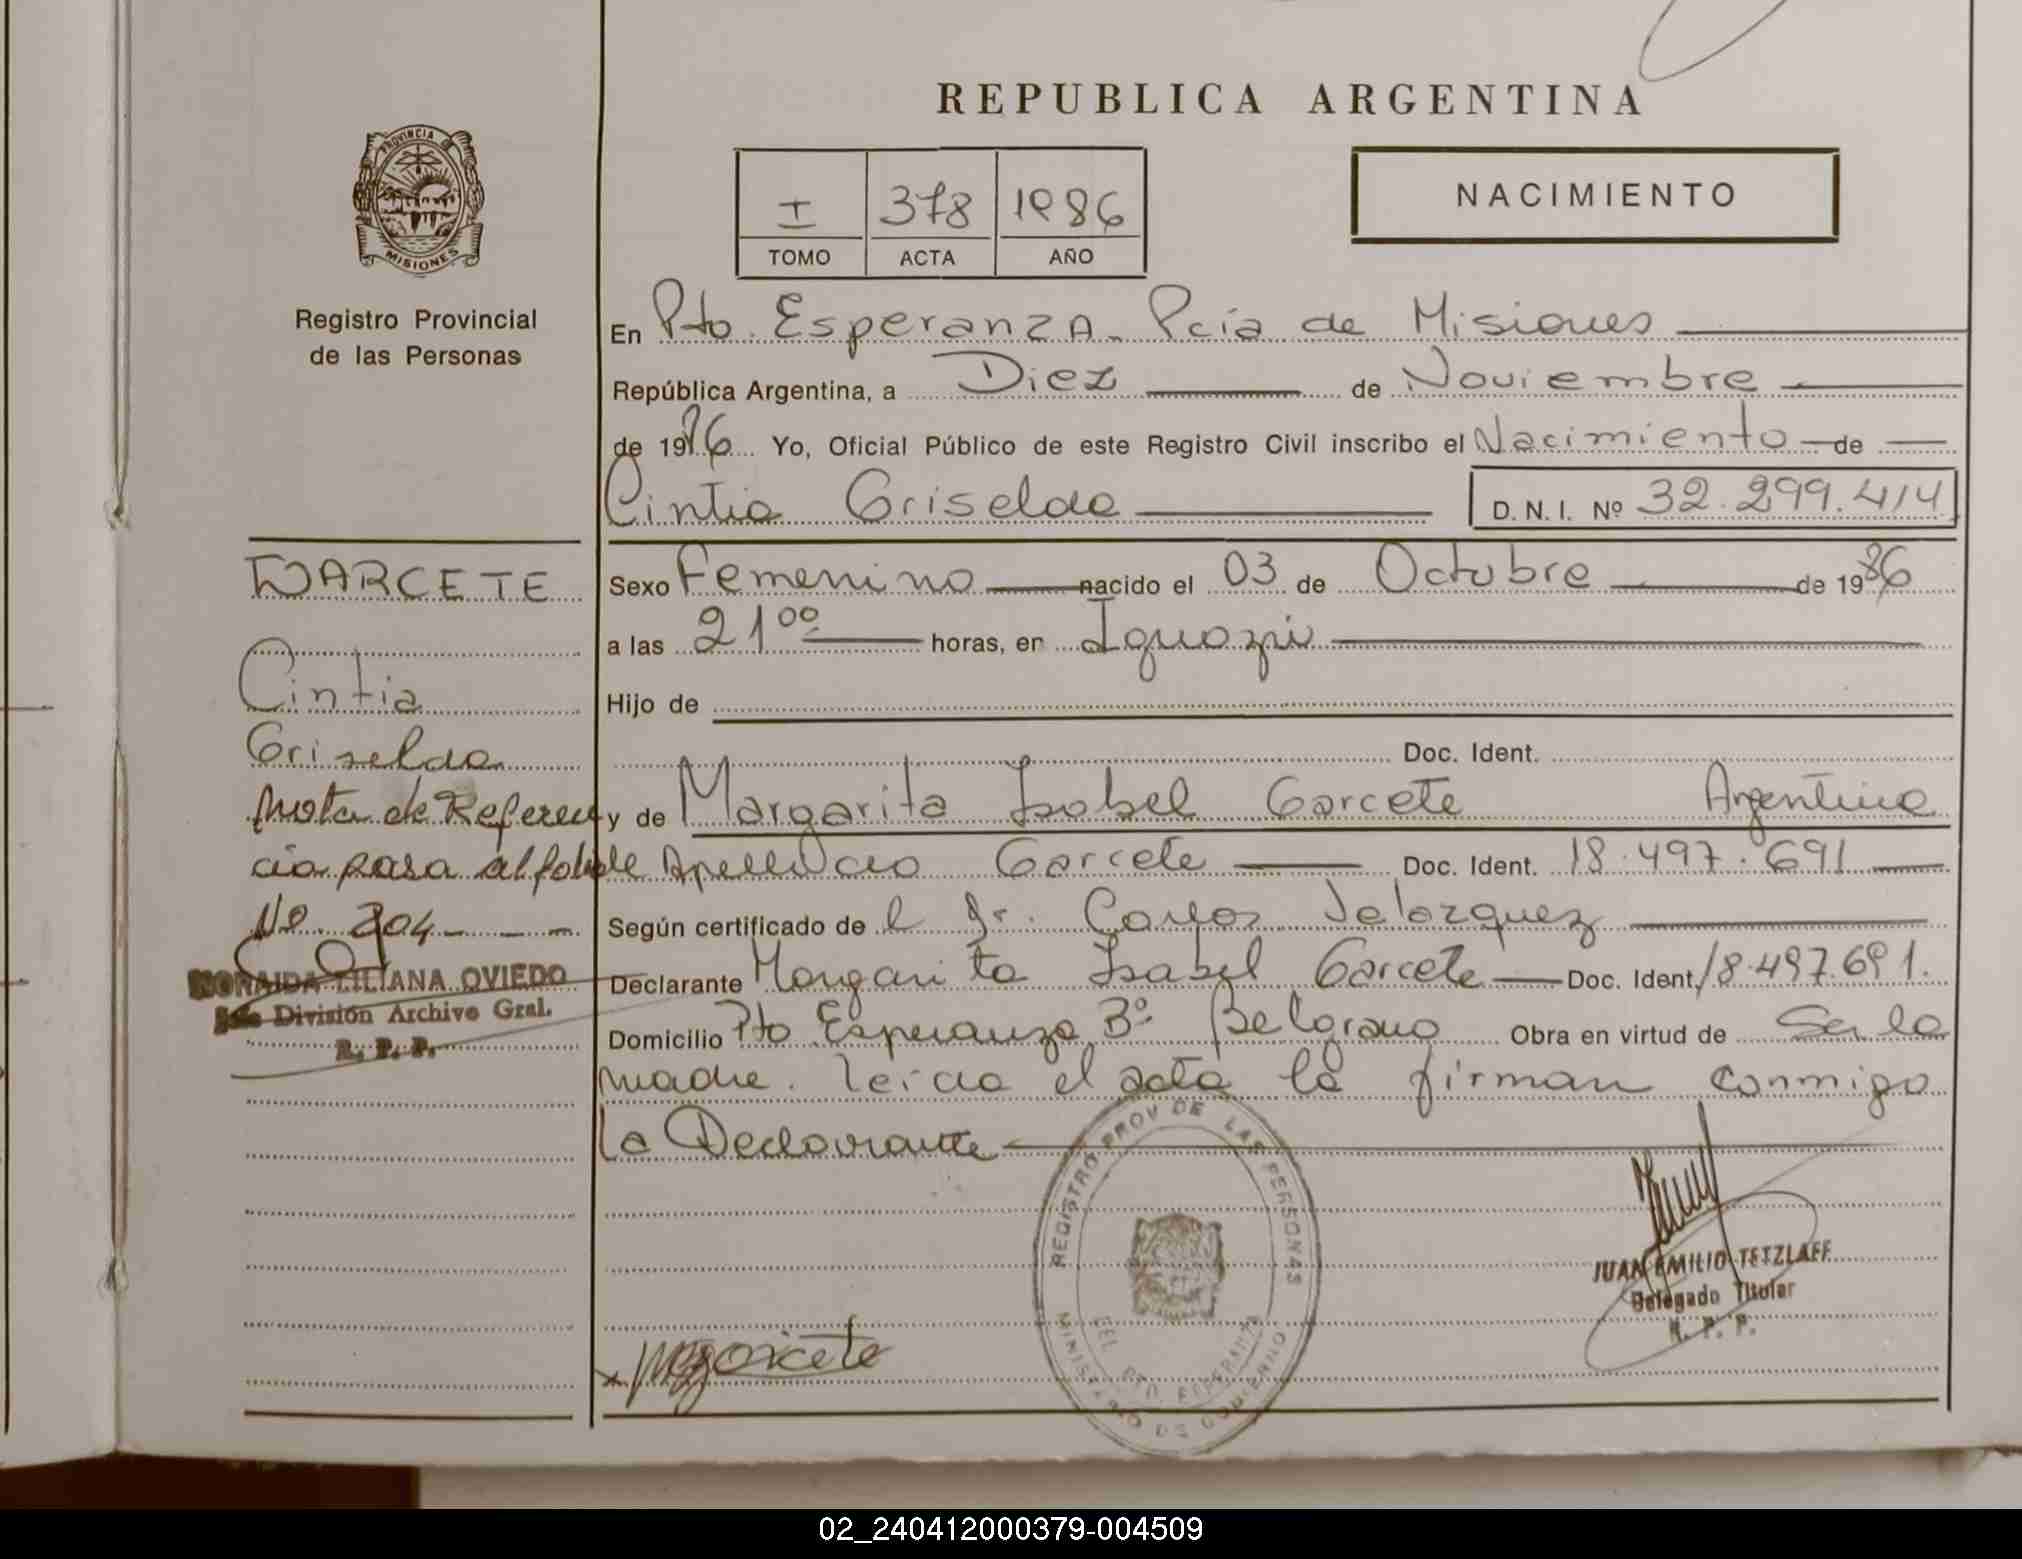 REPUBLICA ARGENTINA
PROVINCIA
MISIONES
Registro Provincial
de las Personas
I 378 1986
TOMO ACTA AÑO
NACIMIENTO
En Pto. Esperanza - Pcia de Misiones
República Argentina, a Diez de Noviembre
de 1986 Yo, Oficial Público de este Registro Civil inscribo el Nacimiento de
Cintia Griselda D.N.I. Nº 32.299.414
Sexo Femenino nacido el 03 de Octubre de 1986
a las 21oo horas, en Iguazú
Hijo de
Doc. Ident.
y de Margarita Isabel Garcete Argentina
de Apellido Garcete Doc. Ident. 18.497.691
Según certificado de l Dr. Carlos Velazquez
Declarante Margarita Isabel Garcete Doc. Ident. 18.497.691.
Domicilio Pto Esperanza Bº Belgrano Obra en virtud de Ser la
madre. leida el acta la firman conmigo
la Declarante
GARCETE
Cintia
Griselda
Nota de Referen
cia pasa al folio
No. 204 - - -
NORAIDA LILIANA OVIEDO
Jefe División Archivo Gral.
R. P. P.
REGISTRO PROV DE LAS PERSONAS
DEL PTO. ESPERANZA
MINISTERIO DE GOBIERNO
JUAN EMILIO TETZLAFF
Delegado Titular
R. P. P.
x Mgarcete
02_240412000379-004509